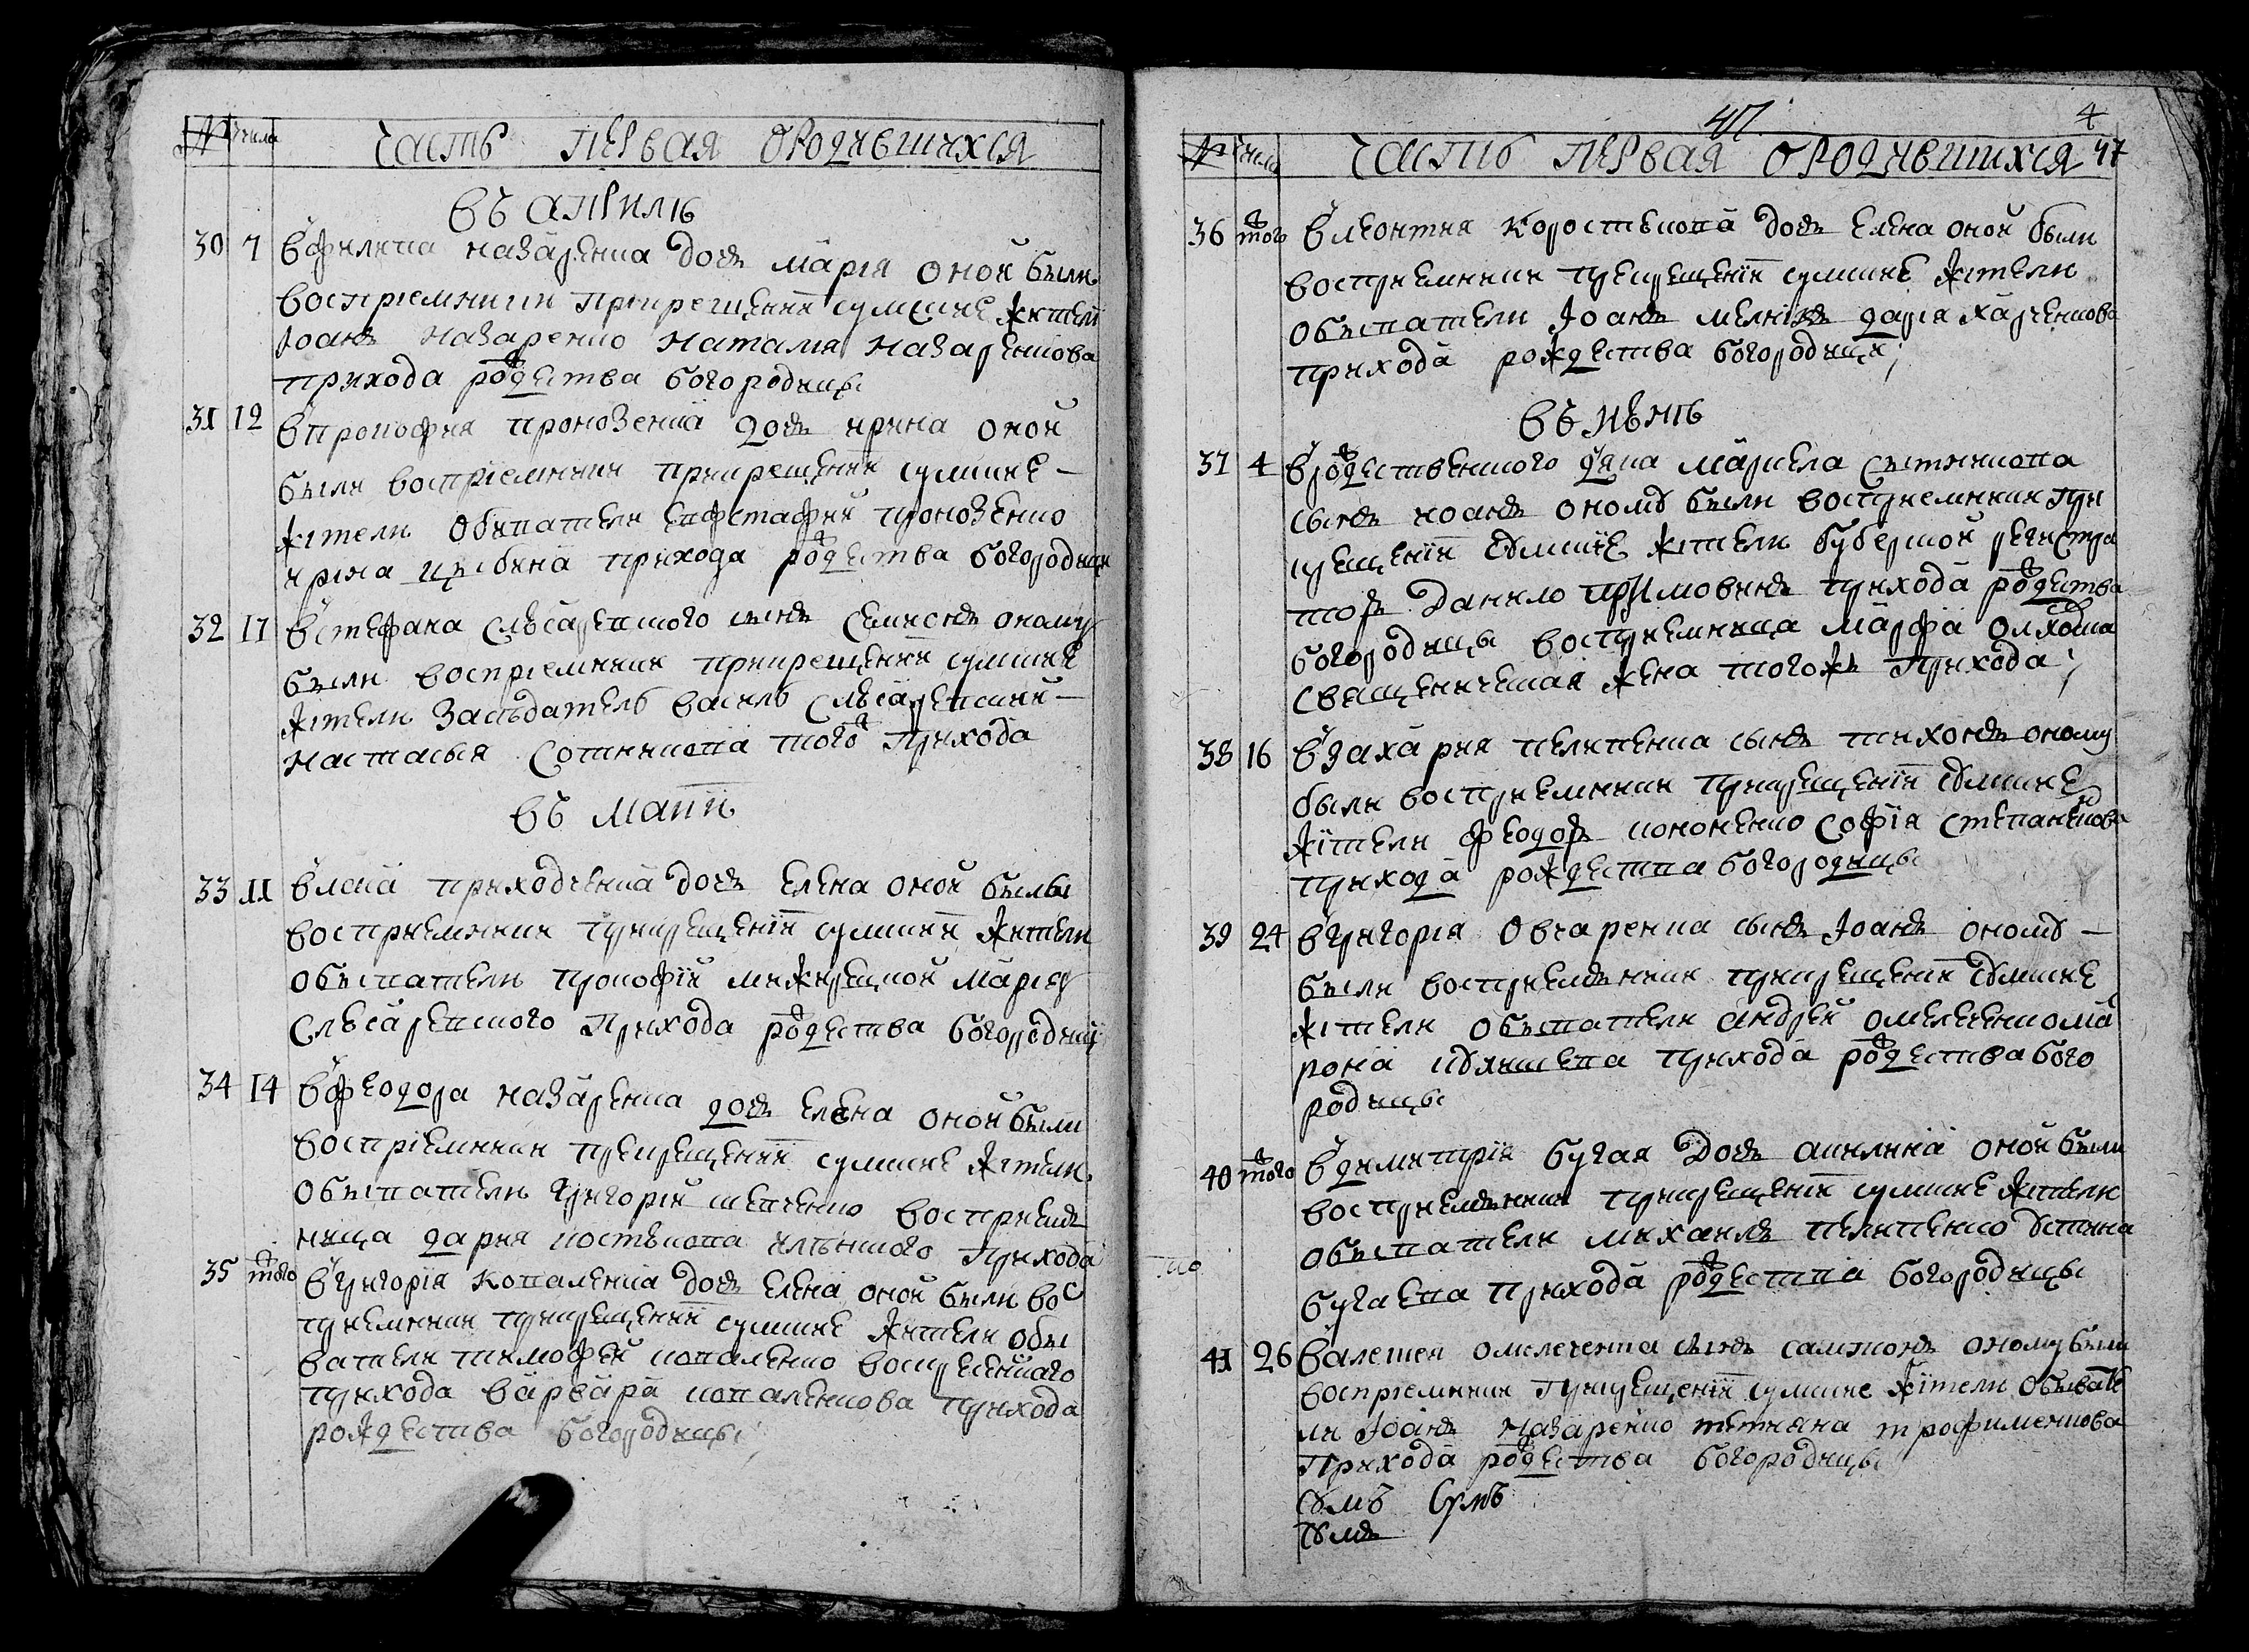 № числа Часть первая ородившихся
въ априлѣ
30 7 Вфилипа назаренка дочъ мария оной были
восприемники прикрещении сумские жители
Іоанъ назаренко наталия назаренкова
прихода рождества богородицы
31 12 Впрокофия проновенка дочъ ирина оной
были восприемники прикрещении сумские
жители обыватели евфстафий проновенко
ирина цыбина прихода рождества богородицы
32 17 Встефана слѣсаревского сынъ самсонъ оному
были восприемники прикрещении сумские
жители засѣдатель василь слѣсаревский
настасья сотникова того ж прихода
въ маии
33 11 Влкиа приходченка дочъ елена оной были
восприемники прикрещении сумскии жители
обыватели прокофий мария
слѣсаревского прихода рождества богородицы
34 14 Вфеодора назаренка дочъ елена оной были
восприемники прикрещении сумские жители
обыватели григорий шевченко восприем
ница дария костѣкова илѣнского прихода
35 того ж Вгригория коваленка дочъ елена оной были вос
приемники прикрещении сумские жители обы
ватели тимофей коваленко воскресенского
прихода варвара коваленкова прихода
рождества богородицы
47 4
№ числа Часть первая ородившихся 47
36 того ж Влеонтия коростѣкова дочъ елена оной были
восприемники прикрещении сумские жители
обыватели Іоанъ мелникъ дария харченкова
прихода рождества богородицы;
въ июнѣ
37 4 Врождественского дяка маркела сытникова
сынъ иоанъ оному были восприемники при
крещении сумские жители губерской регистра
торъ данило прихода рождества
богородицы восприемница марфа
священическая жена того жъ прихода;
38 16 Взахария пелипенка сынъ тихонъ оному
были восприемники прикрещении сумские
жители феодоръ кононенко софия степаненкова
прихода рождества богородицы
39 24 Вгригория овчаренка сынъ Іоанъ оному
были восприемники прикрещении сумские
жители обыватели андрей омелеченко ма
рона прихода рождества бого
родицы
40 того ж Вдимитрия бугая дочъ акилина оной были
восприемники прикрещении сумские жители
обыватели михаилъ пелипенко устина
бугаева прихода рождества богородицы
41 26 Валексея омелеченка сынъ сампсонъ оному были
восприемники прикрещении сумские жители обывате
ли Іоанъ назаренко татияна трофименкова
прихода рождества богородицы
сумъ Сумъ
сумъ